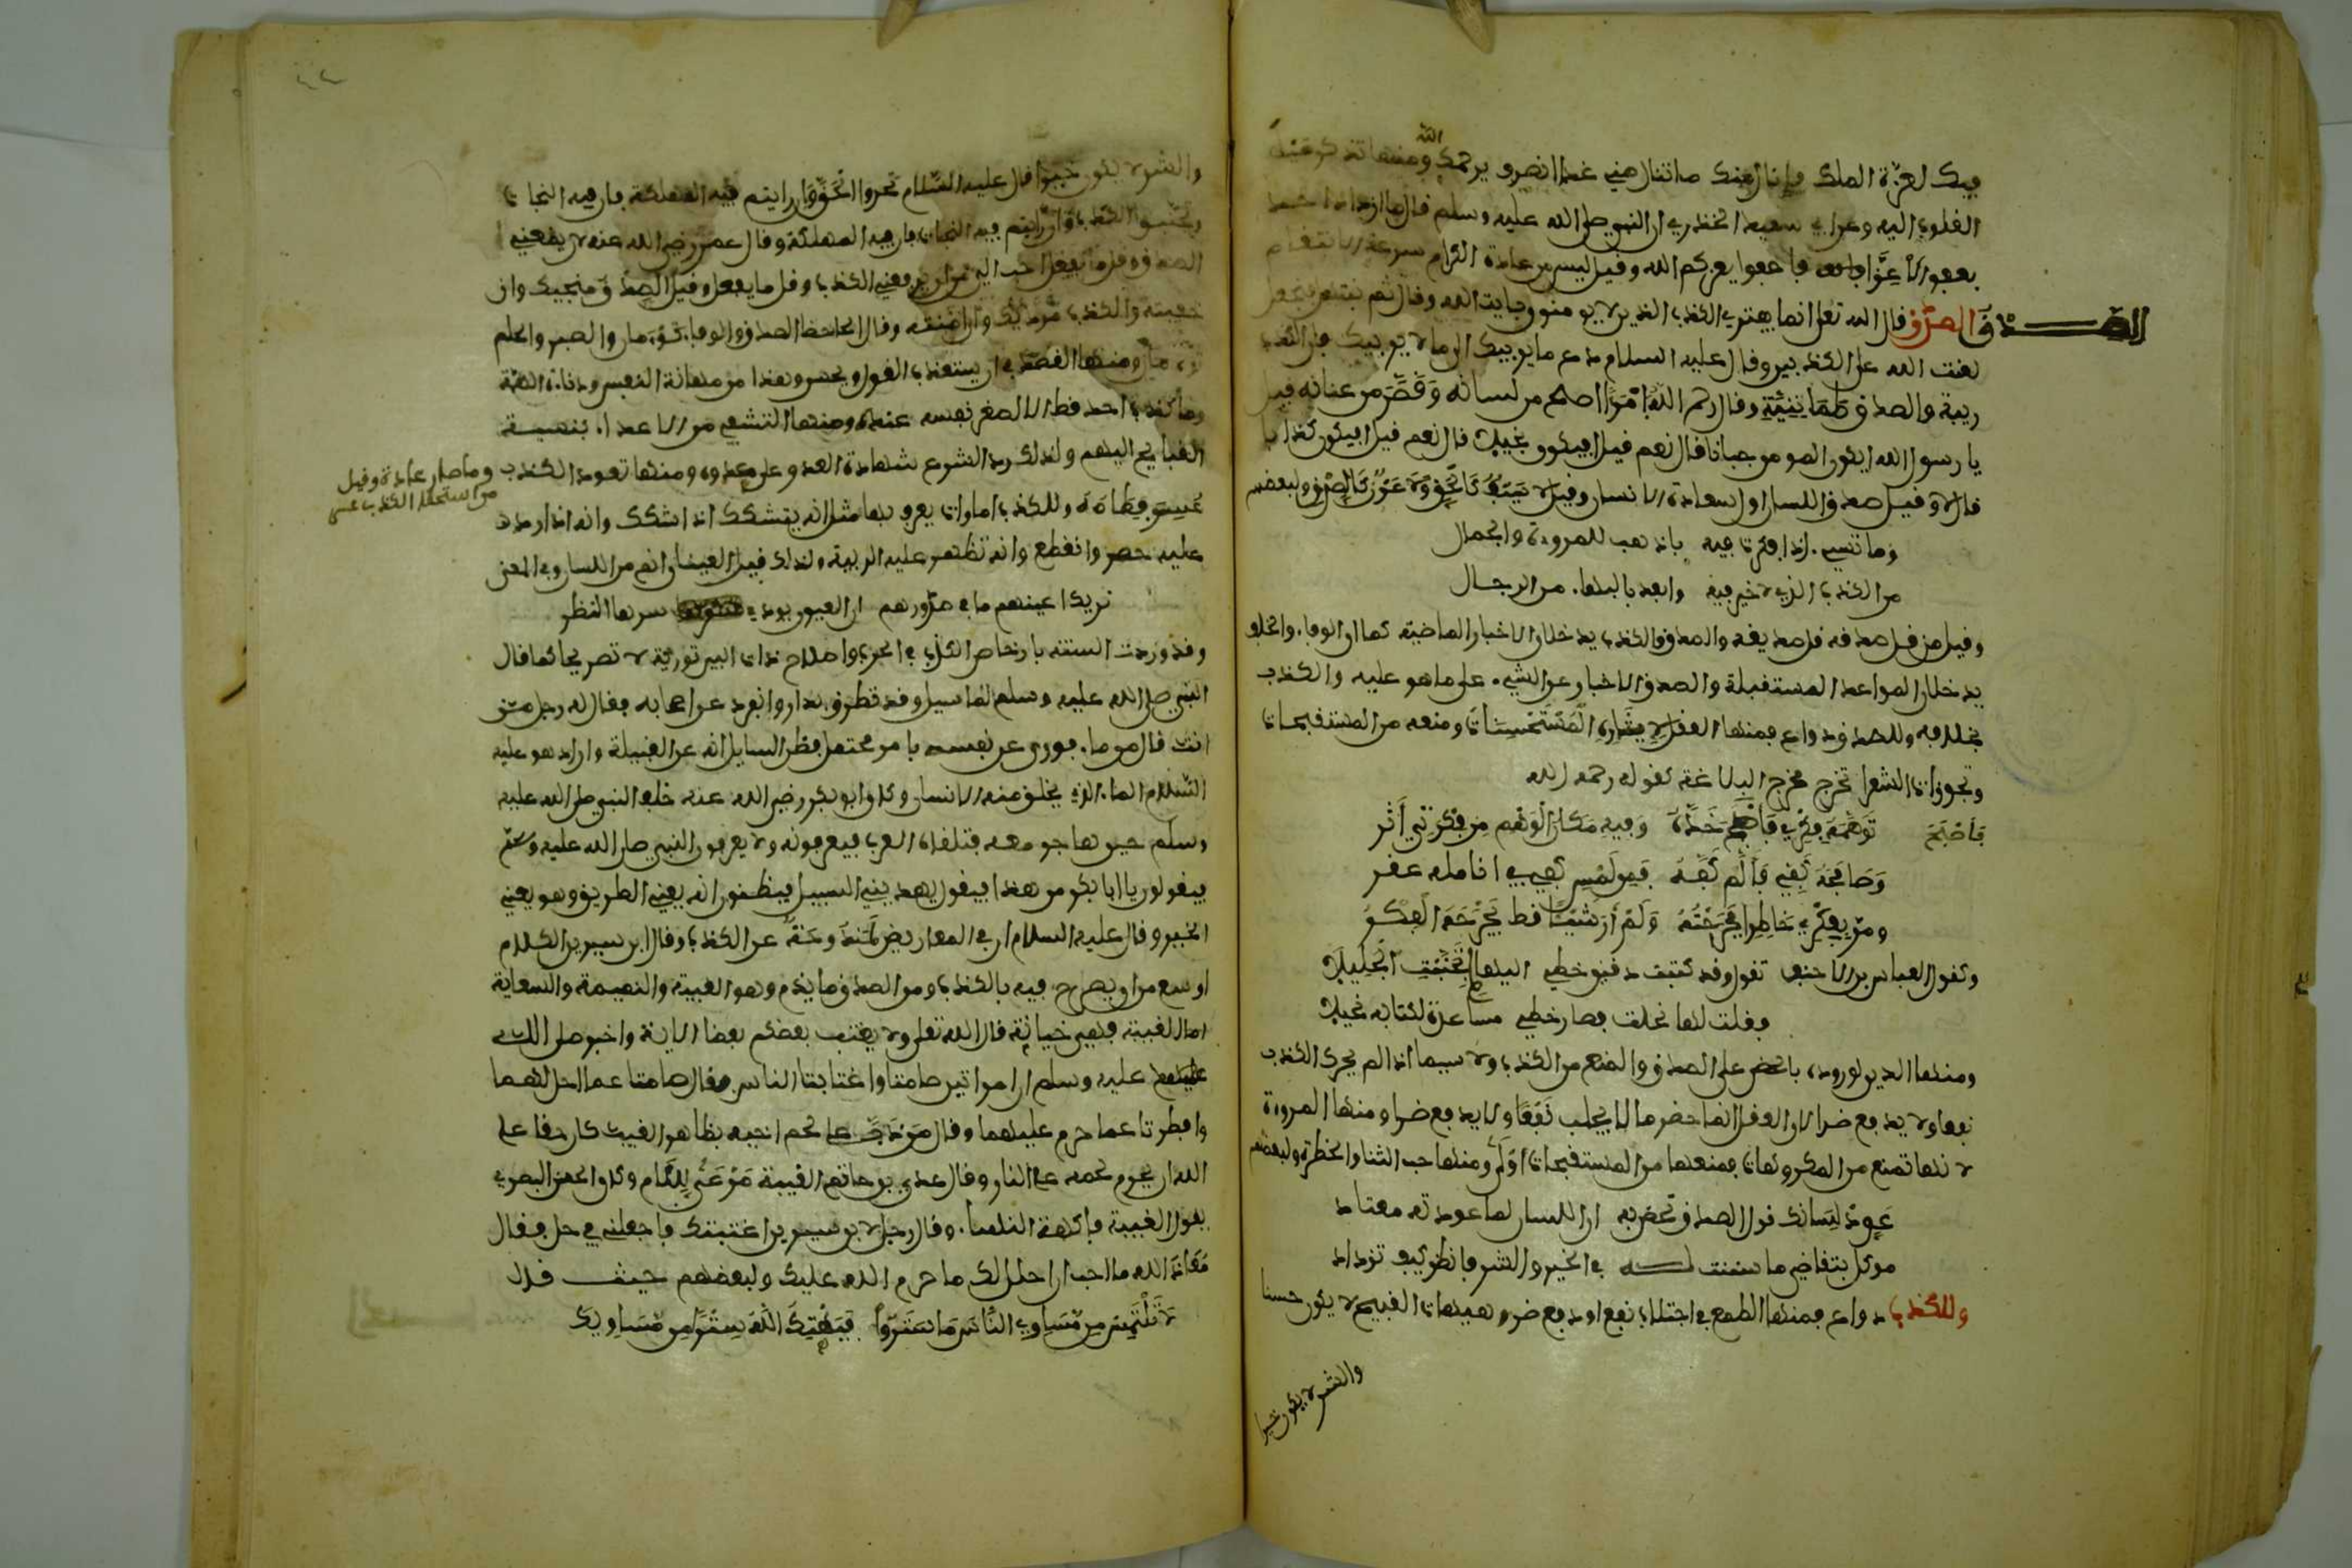 فيك لعزة الملك فإنال منك ما تنال مني غدا انصرف يرحمك الله ومنها تذكر عنه
القلوب اليه وعن ابي سعيد الخذري ان النبي صلى الله عليه وسلم قال ما ازداد احد
بعفو الا عزا فاعفوا يعزكم الله وقيل ليس من عادة الكرام سرعة الانتقام
الصدق الصدق قال الله تعلى انما يفتري الكذب الذين لا يومنون بايت الله وقال ثم نبتهل فنجعل
لعنت الله على الكذبين وقال عليه السلام دع ما يريبك الى ما لا يريبك فان الكذب
ريبة والصدق طمانينة وقال رحم الله امرا اصلح من لسانه وقصر من عنانه قيل
يا رسول الله ايكون المومن جبانا قال نعم قيل افيكون بخيلا قال نعم قيل افيكون كذابا
قال لا وقيل صدق اللسان اول سعادة الانسان وقيل لا سيف كالحق ولا عون كالصدق ولبعضهم
وما شيء اذا فكرت فيه باذهب للمروءة والجمال
من الكذب الذي لا خير فيه وابعد بالبهاء من الرجال
وقيل من قل صدقه قل صديقه والصدق والكذب يدخلان الاخبار الماضية كما ان الوفاء والخلف
يدخلان المواعد المستقبلة والصدق الاخبار عن الشيء على ما هو عليه والكذب
بخلافه وللصدق دواع فمنها العقل لايثاره المستحسنات ومنعه من المستقبحات
وتجوزات الشعرا تخرج مخرج البلاغة كقوله رحمه الله
فاصبح
توهمه فكري فاصبح خده وفيه مكان الوهم من فكرتي أثر
وصافحه كفي فآلم كفه فمن لمس كفي في انامله عقر
ومر بفكري خاطرا فجرحته ولم أر شيئا قط يجرحه الفكر
وكقول العباس بن الاحنف تقول وقد كتبت دقيق خطي اليها لم تجنبت الجليلا
فقلت لها نحلت فصار خطي مساعدة لكتابه نحيلا
ومنها الدين لوروده بالحض على الصدق والمنع من الكذب ولا سيما اذا لم يجر الكذب
نفعا ولا يدفع ضرا لان العقل انما حضر ما لا يجلب نفعا ولا يدفع ضرا ومنها المروءة
لانها تمنع من المكروهات فمنعها من المستقبحات اولى ومنها حب الثنا والخطرة ولبعضهم
عود لسانك قول الصدق تحض به ان اللسان لما عودته معتاد
موكل بتقاضي ما سننت له في الخير والشر فانظر كيف تزداد
وللكذب دواع فمنها الطمع في اجتلاب نفع او دفع ضر وهيهات القبيح لا يكون حسنا
والشر لا يكون خيرا
والشر لا يكون خيرا قال عليه السلام تحروا الحق وان رايتم فيه الهلكة فان فيه النجاة
وتجنبوا الكذب وان رايتم فيه النجاة فان فيه المهلكة وقال عمر رضي الله عنه لان يضعني
الصدق وقل ما يفعل احب الي من ان يرفعني الكذب وقل ما يفعل وقيل الصدق منجيك وان
خفته والكذب مرديك وان امنته وقال الجاحظ الصدق والوفاء توءمان والصبر والحلم
توءمان ومنها القصد في ان يستعذب القول ويحسن وهذا من مهانة النفس ودناءة الهمة
وما كذب احد قط الا لصغر نفسه عنده ومنها التشفي من الاعداء بنسبة
القبايح اليهم ولذلك رد الشرع شهادة العدو على عدوه ومنها تعود الكذب وما صار عادة وقيل
من استحلا الكذب عسر
عسر فطامه وللكذب امارات يعرف بها مثل انه يتشكك اذا شكك وانه اذا رددت
عليه حصر وانقطع وانه تظهر عليه الريبة ولذلك قيل العينان انم من اللسان وفي المعنى
تريك اعينهم ما في صدورهم ان العيون يودي سرها النظر
وقد وردت السنة بارخاص الكذب في الحرب واصلاح ذات البين تورية لا تصريحا كما قال
النبي صلى الله عليه وسلم لما سيل وقد تطرف بدار وانفرد عن اصحابه فقال له رجل ممن
انت قال من ماء فورى عن نفسه بامر محتمل فظن السايل انه عن القبيلة واراد هو عليه
السلام الماء الذي يخلق منه الانسان وكان ابو بكر رضي الله عنه خلف النبي صلى الله عليه
وسلم حين هاجر معه فتلقاه العرب فيعرفونه ولا يعرفون النبي صلى الله عليه وسلم
فيقولون يا ابا بكر من هذا فيقول يهديني السبيل فيظنون انه يعني الطريق وهو يعني
الخير وقال عليه السلام ان في المعاريض لمندوحة عن الكذب وقال ابن سيرين الكلام
اوسع من ان يصرح فيه بالكذب ومن الصدق ما يذم وهو الغيبة والنميمة والسعاية
اما الغيبة فهي خيانة قال الله تعلى ولا يغتب بعضكم بعضا الاية واخبر صلى الله
عليه وسلم ان امراتين صامتا واغتابتا الناس فقال صامتا عما احل لهما
وافطرتا عما حرم عليهما وقال من ذب عن لحم اخيه بظاهر الغيب كان حقا على
الله ان يحرم لحمه على النار وقال عدي بن حاتم الغيبة مرعى اللئام وكان الحسن البصري
يقول الغيبة فاكهة النساء وقال رجل لابن سيرين اغتبتك فاجعلني في حل فقال
معاذ الله ما احب ان احل لك ما حرم الله عليك ولبعضهم حيث قال
لا تلتمس من مساوي الناس ما ستروا فيهتك الله سترا من مساويك